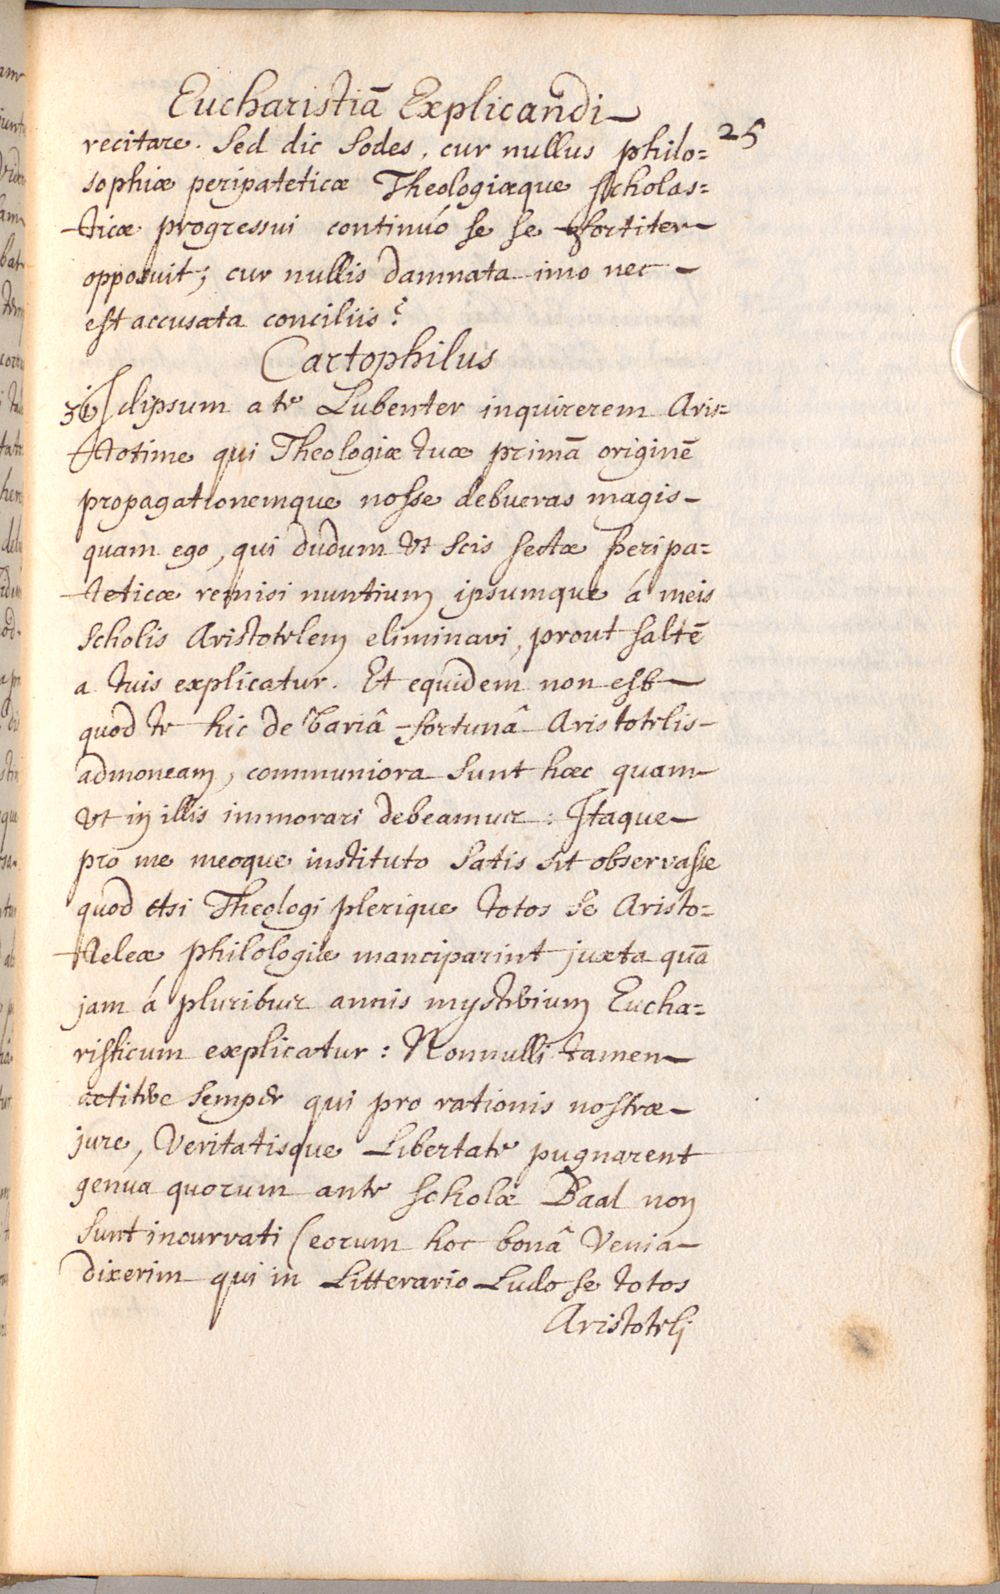 Eucharistiã Explicandi
25
recitare. Sed dic Sodes, cur nullus philo=
sophiæ peripateticæ Theologiæque scholas=
ticæ progressui continuó se se fortiter
opposuit; cur nullis damnata imo nec
est accusata conciliis?
Cartophilus
36 Idipsum a te Lubenter inquirerem Aris=
totime qui Theologiæ tuæ primã originẽ
propagationemque nosse debueras magis
quam ego, qui dudum Vt Scis sectæ peripa=
teticæ remisi nuntium ipsumque á meis
Scholis Aristotelem eliminavi, prout saltẽ
a tuis explicatur. Et equidem non est
quod te hic de Variâ fortunâ Aristotelis
admoneam, communiora Sunt hæc quam
Vt in illis immorari debeamus: Itaque
pro me meoque instituto Satis sit observasse
quod etsi Theologi plerique totos se Aristo=
teleæ philologiæ manciparint juxta quã
jam á pluribus annis mysterium Eucha=
risticum explicatur: Nonnulli tamen
extitere Semper qui pro rationis nostræ
jure, Veritatisque Libertate pugnarent
genua quorum ante scholæ Baal non
Sunt incurvati (eorum hoc bonâ Venia
dixerim qui in Litterario Ludo se totos
Aristoteli